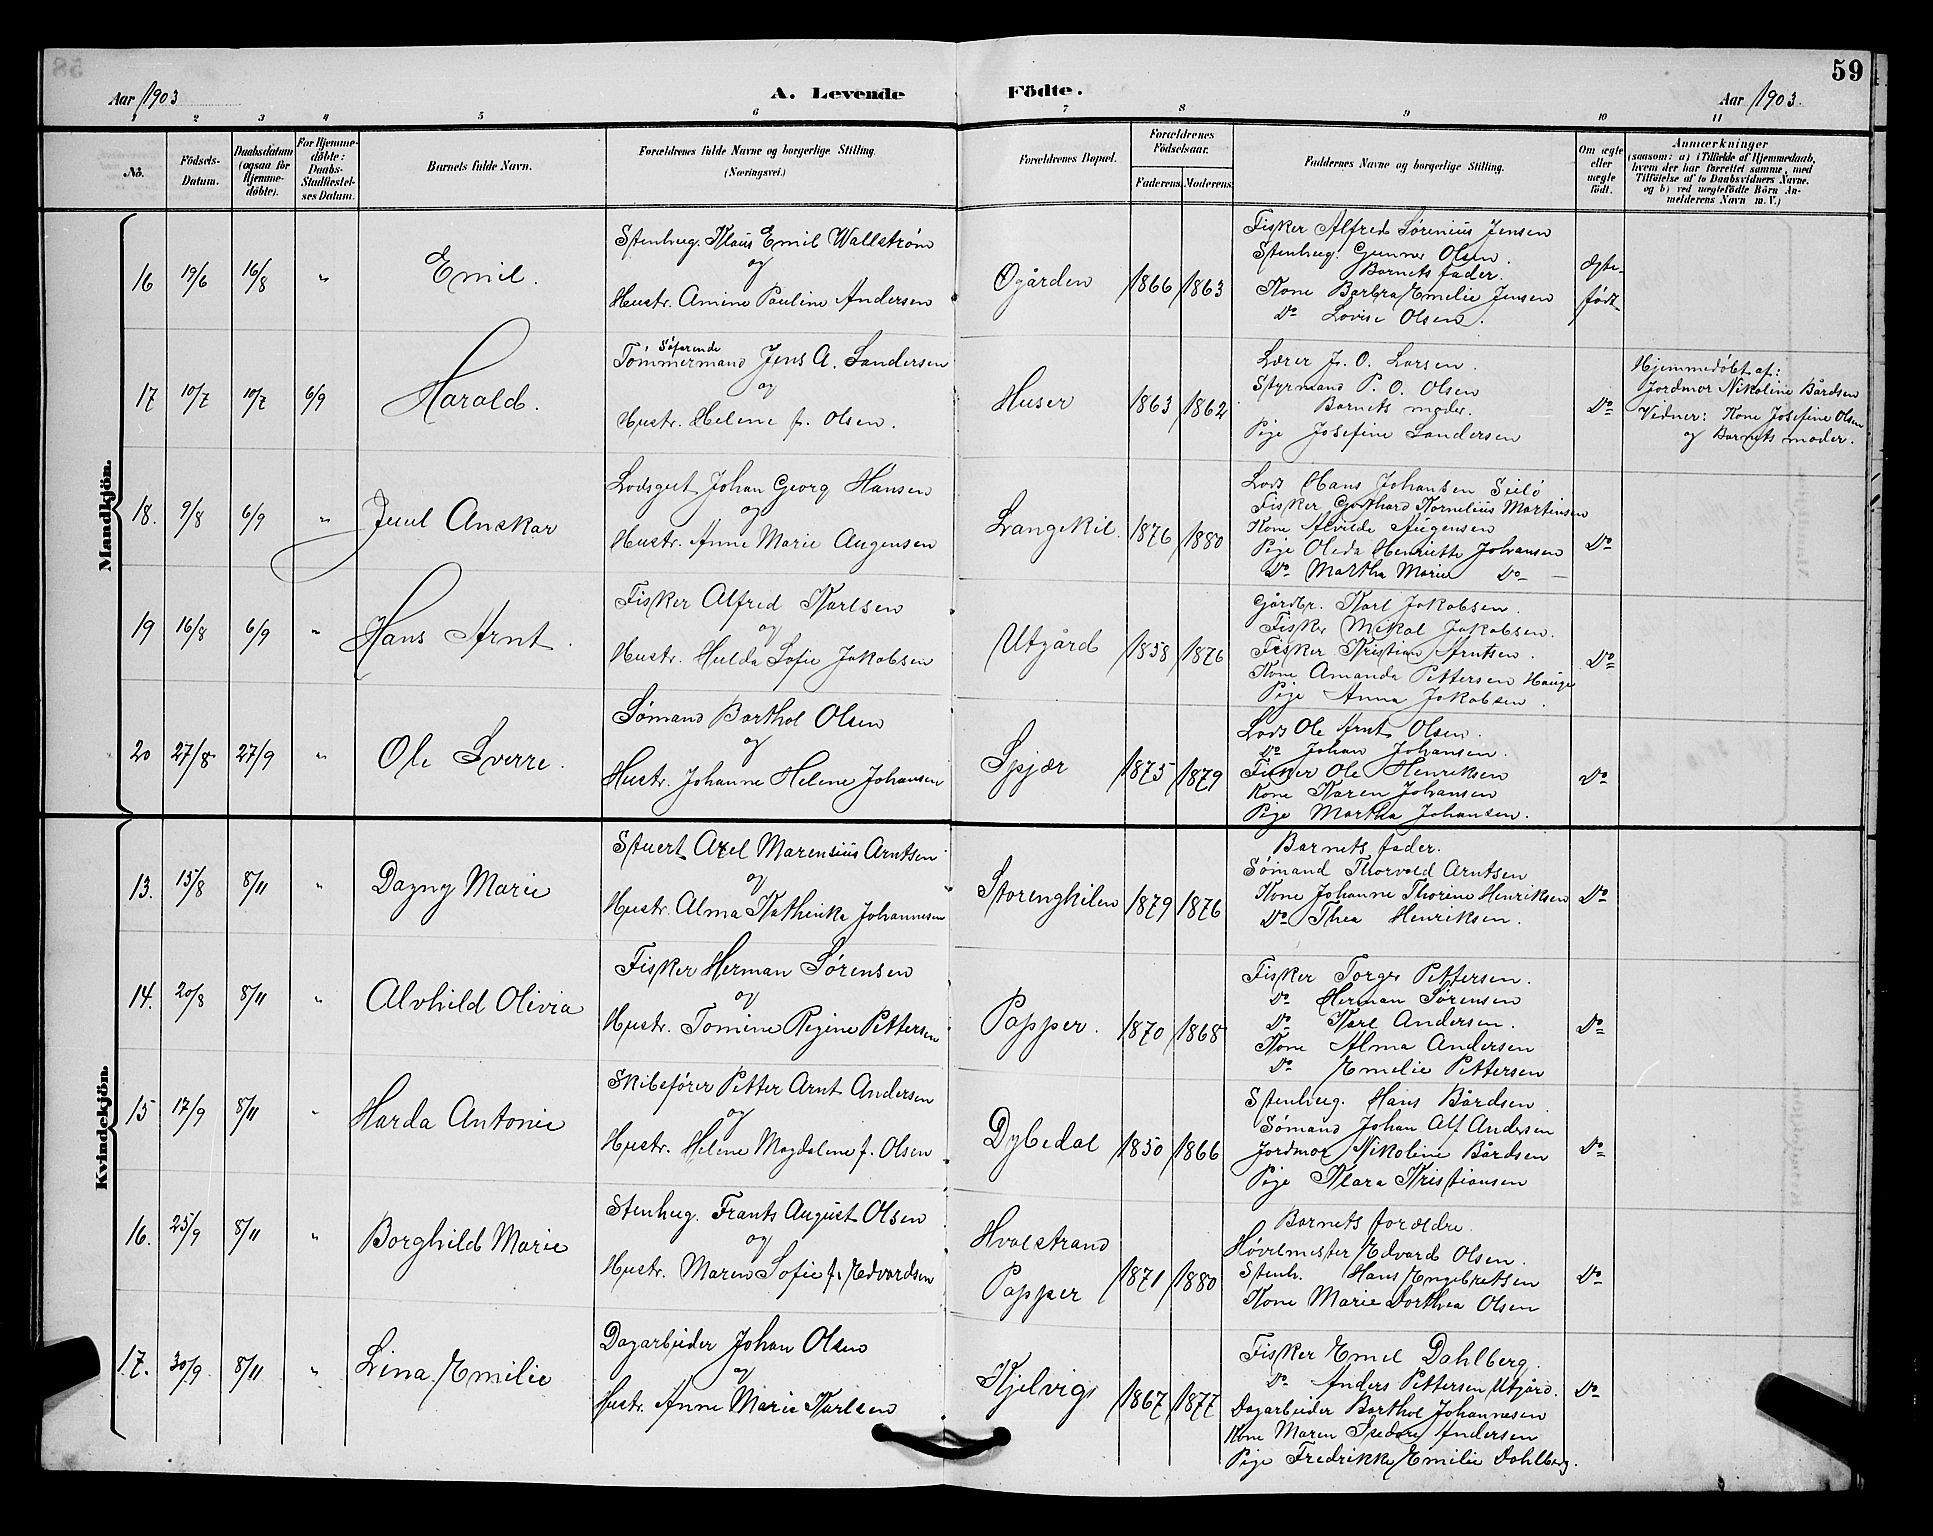 59
Aar 1903
A. Levende Födte.
Aar 1903.
1 2 3 4 5 6 7 8 9 10 11
No.
Födsels-Datum.
Daabsdatum (ogsaa for Hjemme-döbte).
For Hjemme-döbte: Daabs-Stadfæstel-ses Datum.
Barnets fulde Navn.
Forældrenes fulde Navne og borgerlige Stilling. (Næringsvei.)
Forældrenes Bopæl.
Forældrenes Födselsaar.
Faderens. Moderens.
Faddernes Navne og borgerlige Stilling.
Om ægte eller uægte födt.
Anmærkninger
(saasom: a) i Tilfælde af Hjemmedaab,
hvem der har forrettet samme, med
Tilföielse af to Daabsvidners Navne,
og b) ved uegtefödte Börn An-
melderens Navn m. V.)
Mandkjön.
16 19/6 16/8 " Emil.
Stenhug. Klaus Emil Wallstrøm
og
Hustr. Amine Pauline Andersen
Øgården 1866 1863
Fisker Alfred Sørenius Jensen
Stenhug. Gunner Olsen.
Barnets fader.
Kone Barbra Emelie Jensen
Do Lovise Olsen.
Ægte-
født
17 10/7 10/7 6/9 Harald.
Søfarende
Tømmermand Jens A. Sandersen
og
Hustr. Helene f. Olsen.
Huser 1863 1862
Lærer J. O. Larsen.
Styrmand P. O. Olsen
Barnets moder.
Pige Josefine Sandersen
Do
Hjemmedøbt af:
Jordmor Nikoline Bårdsen
Vidner: Kone Josefine Olsen
og Barnets moder.
18. 9/8 6/9 " Juul Anskar
Lodsgut Johan Georg Hansen
og
Hustr. Anne Marie Augensen
Langekil. 1876 1880
Lods Hans Johansen Seilø
Fisker Gothard Kornelius Martinsen
Kone Alvilde Augensen
Pige Oleda Henriette Johansen
Do Martha Marie Do
Do
19 16/8 6/9 " Hans Arnt.
Fisker Alfred Karlsen
og
Hustr. Hulda Sofie Jakobsen
Utgård 1858 1876
Gårdbr. Karl Jakobsen.
Fisker Mikal Jakobsen.
Fisker Kristian Arntsen.
Kone Amanda Pettersen Hauge
Pige Anna Jakobsen.
Do
20 27/8 27/9 " Ole Sverre.
Sømand Barthol Olsen
og
Hustr. Johanne Helene Johansen
Spjær 1875 1879
Lods Ole Arnt Olsen.
Do Johan Johansen.
Fisker Ole Henriksen
Kone Karen Johansen
Pige Martha Johansen.
Do
Kvindekjön.
13. 15/8 8/11 " Dagny Marie
Stuert Axel Marensius Arntsen
og
Hustr. Alma Kathinka Johannesen
Storengkilen 1879 1876
Barnets fader.
Sømand Thorvald Arntsen
Kone Johanne Thorine Henriksen
Do Thea Henriksen.
Do
14. 20/8 8/11 " Alvhild Olivia
Fisker Herman Sørensen
og
Hustr. Tomine Regine Pettersen
Papper. 1870 1868
Fisker Torger Pettersen.
Do Herman Sørensen
Do Karl Andersen.
Kone Alma Andersen
Do Emelie Pettersen
Do
15 17/9 8/11 " Harda Antonie
Skibsfører Petter Arnt Andersen
og
Hustr. Helene Magdalene f. Olsen
Dybedal 1850 1866
Stenhug. Hans Bårdsen.
Sømand Johan Alf Andersen
Jordmor Nikoline Bårdsen
Pige Klara Kristiansen
Do
16. 25/9 8/11 " Borghild Marie
Stenhug. Frants August Olsen
og
Hustr. Maren Sofie f. Edvardsen
Hvalstrand
Papper 1871 1880
Barnets forældre.
Høvlmester Edvard Olsen.
Stenh. Hans Engebretsen
Kone Marie Dorthea Olsen
Do
17. 30/9 8/11 " Lina Emilie
Dagarbeider Johan Olsen
og
Hustr. Anne Marie Karlsen
Kjelvig 1867 1877
Fisker Emil Dahlberg.
Do Anders Pettersen Utgård.
Dagarbeider Barthol Johannesen
Kone Maren Andersen
Pige Fredrikke Emilie Dahlberg.
Do